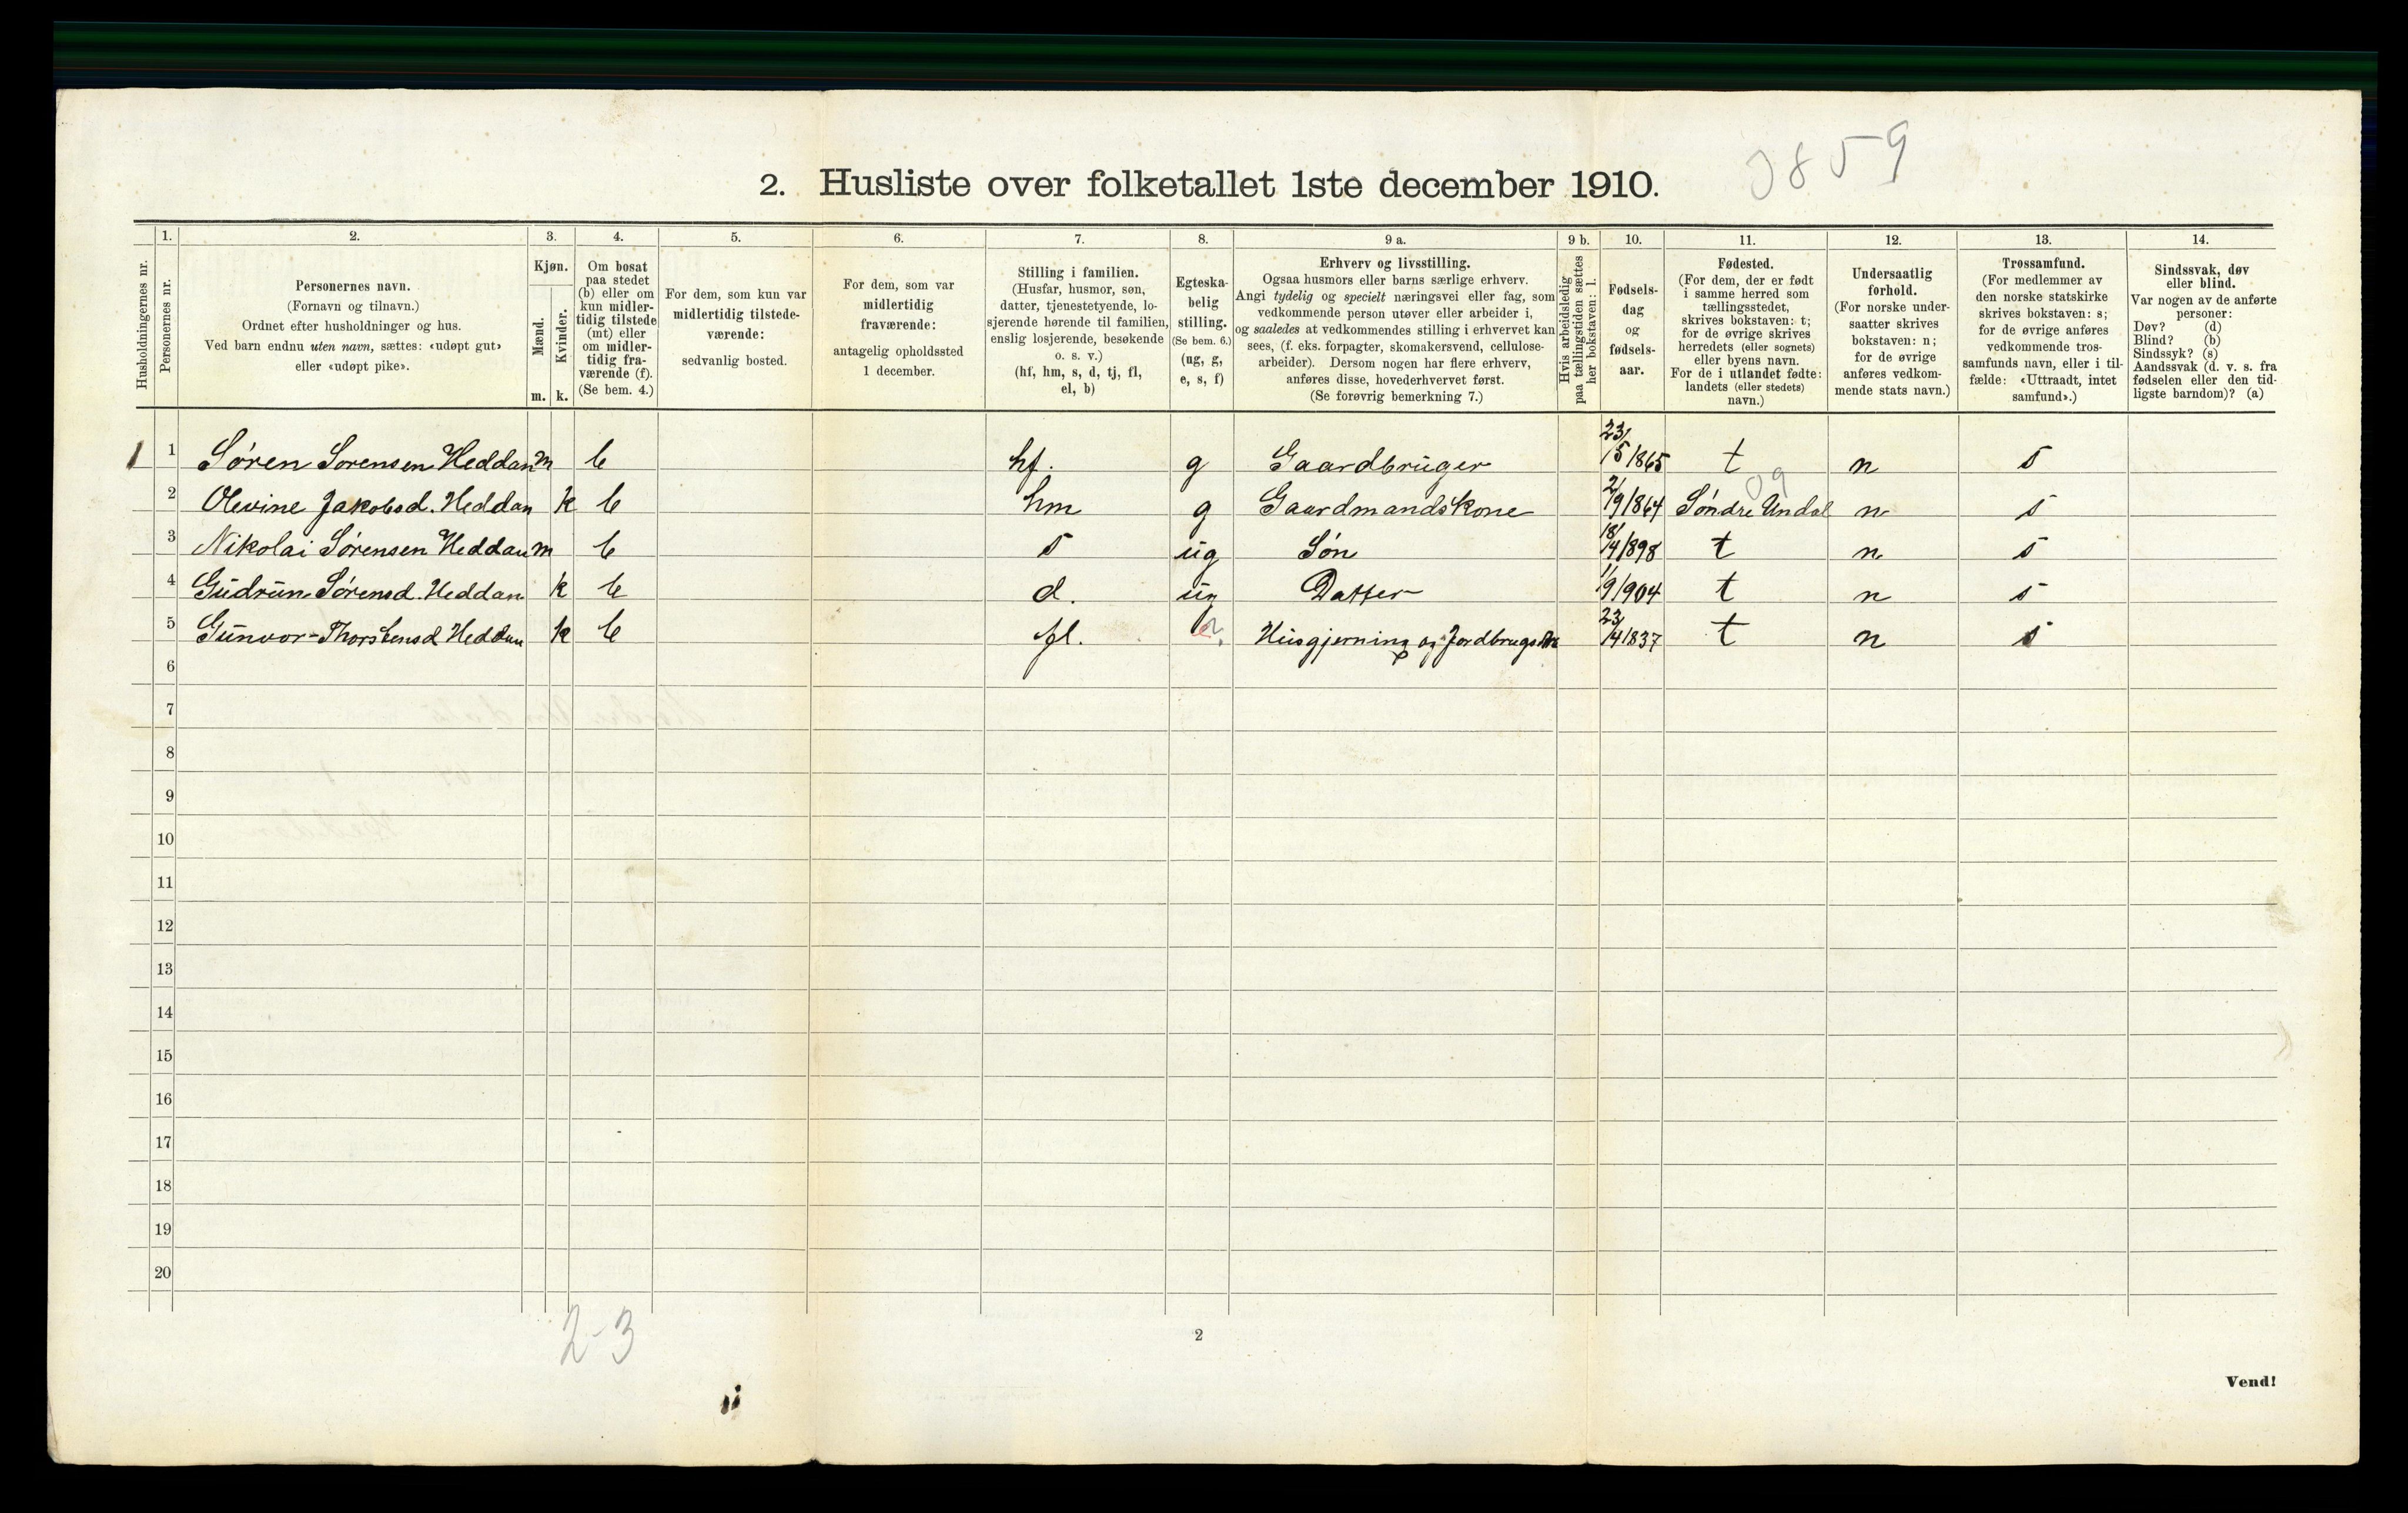 3859
2. Husliste over folketallet 1ste december 1910.
1. 2. 3. 4. 5. 6. 7. 8. 9 a. 9 b. 10. 11. 12. 13. 14.
Husholdningernes nr.
Personernes nr.
Personernes navn.
(Fornavn og tilnavn.)
Ordnet efter husholdninger og hus.
Ved barn endnu uten navn, sættes: «udøpt gut»
eller «udøpt pike».
Kjøn.
Mænd.
Kvinder.
m. k.
Om bosat
paa stedet
(b) eller om
kun midler-
tidig tilstede
(mt) eller
om midler-
tidig fra-
værende (f).
(Se bem. 4.)
For dem, som kun var
midlertidig tilstede-
værende:
sedvanlig bosted.
For dem, som var
midlertidig
fraværende:
antagelig opholdssted
1 december.
Stilling i familien.
(Husfar, husmor, søn,
datter, tjenestetyende, lo-
sjerende hørende til familien,
enslig losjerende, besøkende
o. s. v.)
(hf, hm, s, d, tj, fl,
el, b)
Egteska-
belig
stilling.
(Se bem. 6.)
(ug, g,
e, s, f)
Erhverv og livsstilling.
Ogsaa husmors eller barns særlige erhverv.
Angi tydelig og specielt næringsvei eller fag, som
vedkommende person utøver eller arbeider i,
og saaledes at vedkommendes stilling i erhvervet kan
sees, (f. eks. forpagter, skomakersvend, cellulose-
arbeider). Dersom nogen har flere erhverv,
anføres disse, hovederhvervet først.
(Se forøvrig bemerkning 7.)
Hvis arbeidsledig
paa tællingstiden sættes
her bokstaven: l.
Fødsels-
dag
og
fødsels-
aar.
Fødested.
(For dem, der er født
i samme herred som
tællingsstedet,
skrives bokstaven: t;
for de øvrige skrives
herredets (eller sognets)
eller byens navn.
For de i utlandet fødte:
landets (eller stedets)
navn.)
Undersaatlig
forhold.
(For norske under-
saatter skrives
bokstaven: n;
for de øvrige
anføres vedkom-
mende stats navn.)
Trossamfund.
(For medlemmer av
den norske statskirke
skrives bokstaven: s;
for de øvrige anføres
vedkommende tros-
samfunds navn, eller i til-
fælde: «Uttraadt, intet
samfund».)
Sindssvak, døv
eller blind.
Var nogen av de anførte
personer:
Døv? (d)
Blind? (b)
Sindssyk? (s)
Aandssvak (d. v. s. fra
fødselen eller den tid-
ligste barndom)? (a)
1 1 Søren Sørensen Heddan m b hf. g Gaardbruger 23/5 1865 t n s
09
2 Olevine Jakobsd. Heddan k b hm g Gaardmandskone 2/9 1864 Søndre Undal n s
3 Nikolai Sørensen Heddan m b s ug Søn 18/4 1898 t n s
4 Gudrun Sørensd. Heddan k b d. ug Datter 1/9 1904 t n s
5 Gunvor-Thorstensd Heddan k b fl. Husgjerning og Jordbrugs 23/4 1837 t n s
6
7
8
9
10
11
12
13
14
15
16
17
18
19
20
2-3
2
Vend!